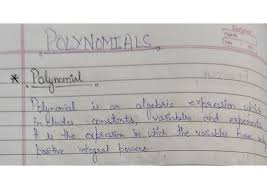 POLYNOMIALS
* Polynomial
Polynomial is an algebraic expression which
includes constants, variables and exponents.
It is the expression in which the variables have only
positive integral powers.